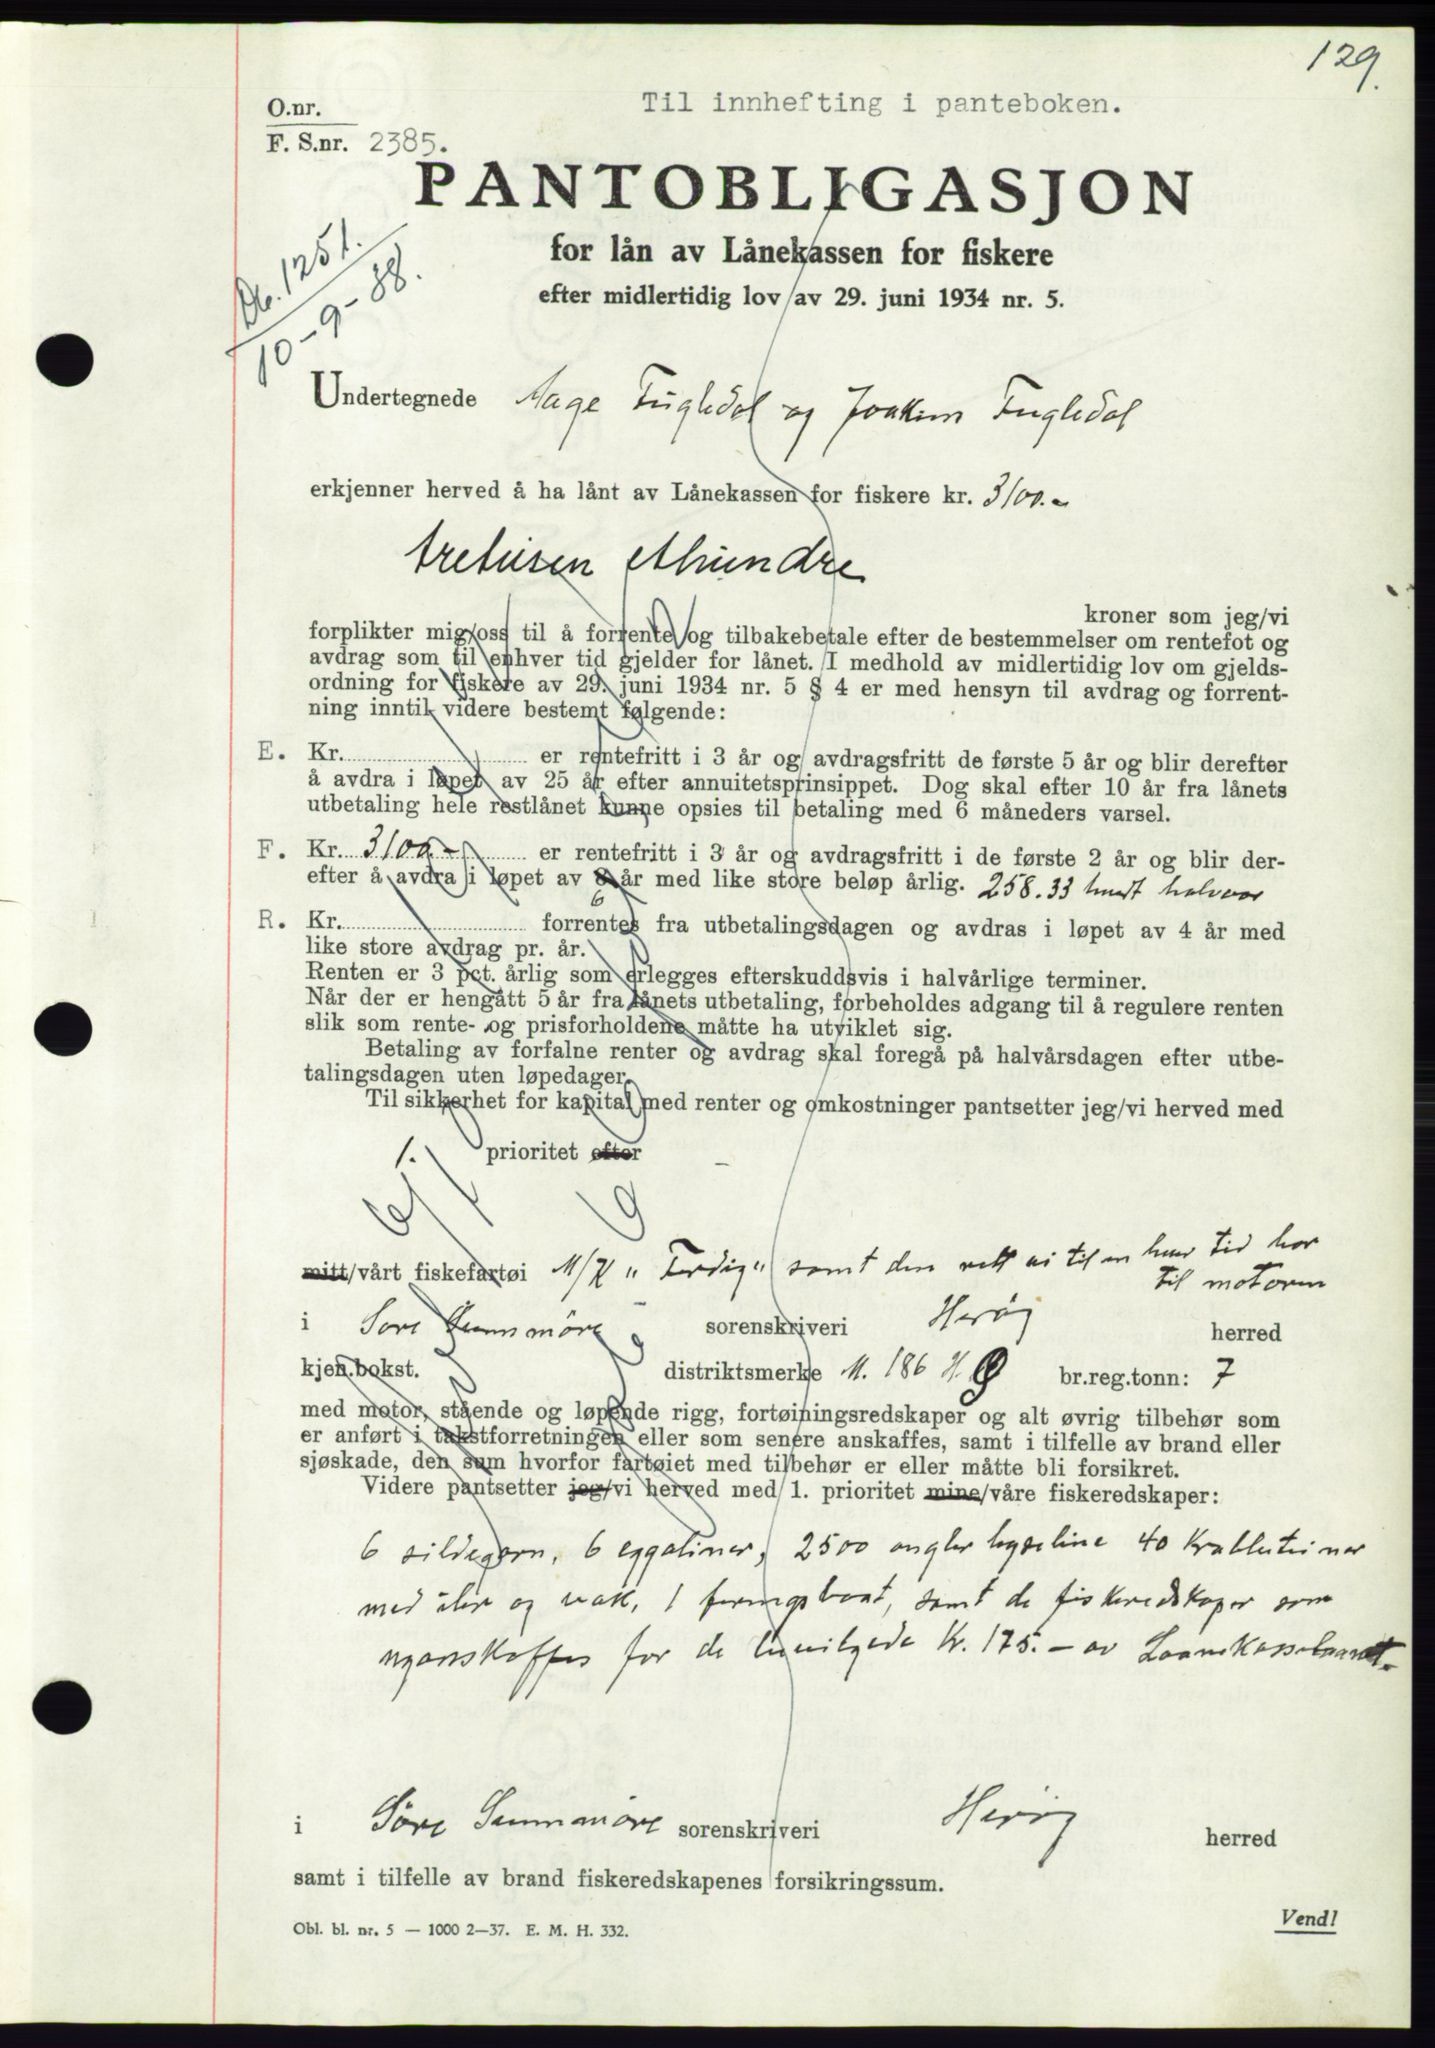 129.
O.nr.
Til innhefting i panteboken.
F. S.nr. 2385.
PANTOBLIGASJON
for lån av Lånekassen for fiskere
efter midlertidig lov av 29. juni 1934 nr. 5.
Db. 1251.
10-9-38.
Undertegnede Aage Fugledal og Joakim Fugledal
erkjenner herved å ha lånt av Lånekassen for fiskere kr. 3100.-
tretusen etthundre
kroner som jeg/vi
forplikter mig/oss til å forrente og tilbakebetale efter de bestemmelser om rentefot og
avdrag som til enhver tid gjelder for lånet. I medhold av midlertidig lov om gjelds-
ordning for fiskere av 29. juni 1934 nr. 5 § 4 er med hensyn til avdrag og forrent-
ning inntil videre bestemt følgende:
E. Kr. er rentefritt i 3 år og avdragsfritt de første 5 år og blir derefter
å avdra i løpet av 25 år efter annuitetsprinsippet. Dog skal efter 10 år fra lånets
utbetaling hele restlånet kunne opsies til betaling med 6 måneders varsel.
F. Kr. 3100.- er rentefritt i 3 år og avdragsfritt i de første 2 år og blir der-
efter å avdra i løpet av 8 år med like store beløp årlig. 258.33 hvert halvaar
6
R. Kr. forrentes fra utbetalingsdagen og avdras i løpet av 4 år med
like store avdrag pr. år.
Renten er 3 pct. årlig som erlegges efterskuddsvis i halvårlige terminer.
Når der er hengått 5 år fra lånets utbetaling, forbeholdes adgang til å regulere renten
slik som rente- og prisforholdene måtte ha utviklet sig.
Betaling av forfalne renter og avdrag skal foregå på halvårsdagen efter utbe-
talingsdagen uten løpedager.
Til sikkerhet for kapital med renter og omkostninger pantsetter jeg/vi herved med
1. prioritet efter
mitt/vårt fiskefartøi M/K "Ferdig" samt den rett vi til en hver tid har
til motoren
i Søre Sunnmøre sorenskriveri Herøy herred
kjen.bokst. distriktsmerke M. 186 H.Ø br.reg.tonn: 7
med motor, stående og løpende rigg, fortøiningsredskaper og alt øvrig tilbehør som
er anført i takstforretningen eller som senere anskaffes, samt i tilfelle av brand eller
sjøskade, den sum hvorfor fartøiet med tilbehør er eller måtte bli forsikret.
Videre pantsetter jeg/vi herved med 1. prioritet mine/våre fiskeredskaper:
6 sildegarn, 6 eggaliner, 2500 angler hyseline 40 Krabbeteiner
med iler og vak, 1 føringsbaat, samt de fiskeredskaper som
nyanskaffes for de bevilgede Kr. 175.- av Laanekasselaanet.
i Søre Sunnmøre sorenskriveri Herøy herred
samt i tilfelle av brand fiskeredskapenes forsikringssum.
Obl. bl. nr. 5 — 1000 2—37. E. M. H. 332.
Vend!